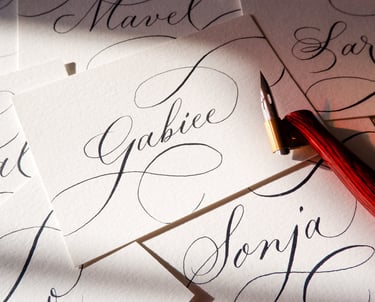 Mavel
Sar
Gabiee
Sonja